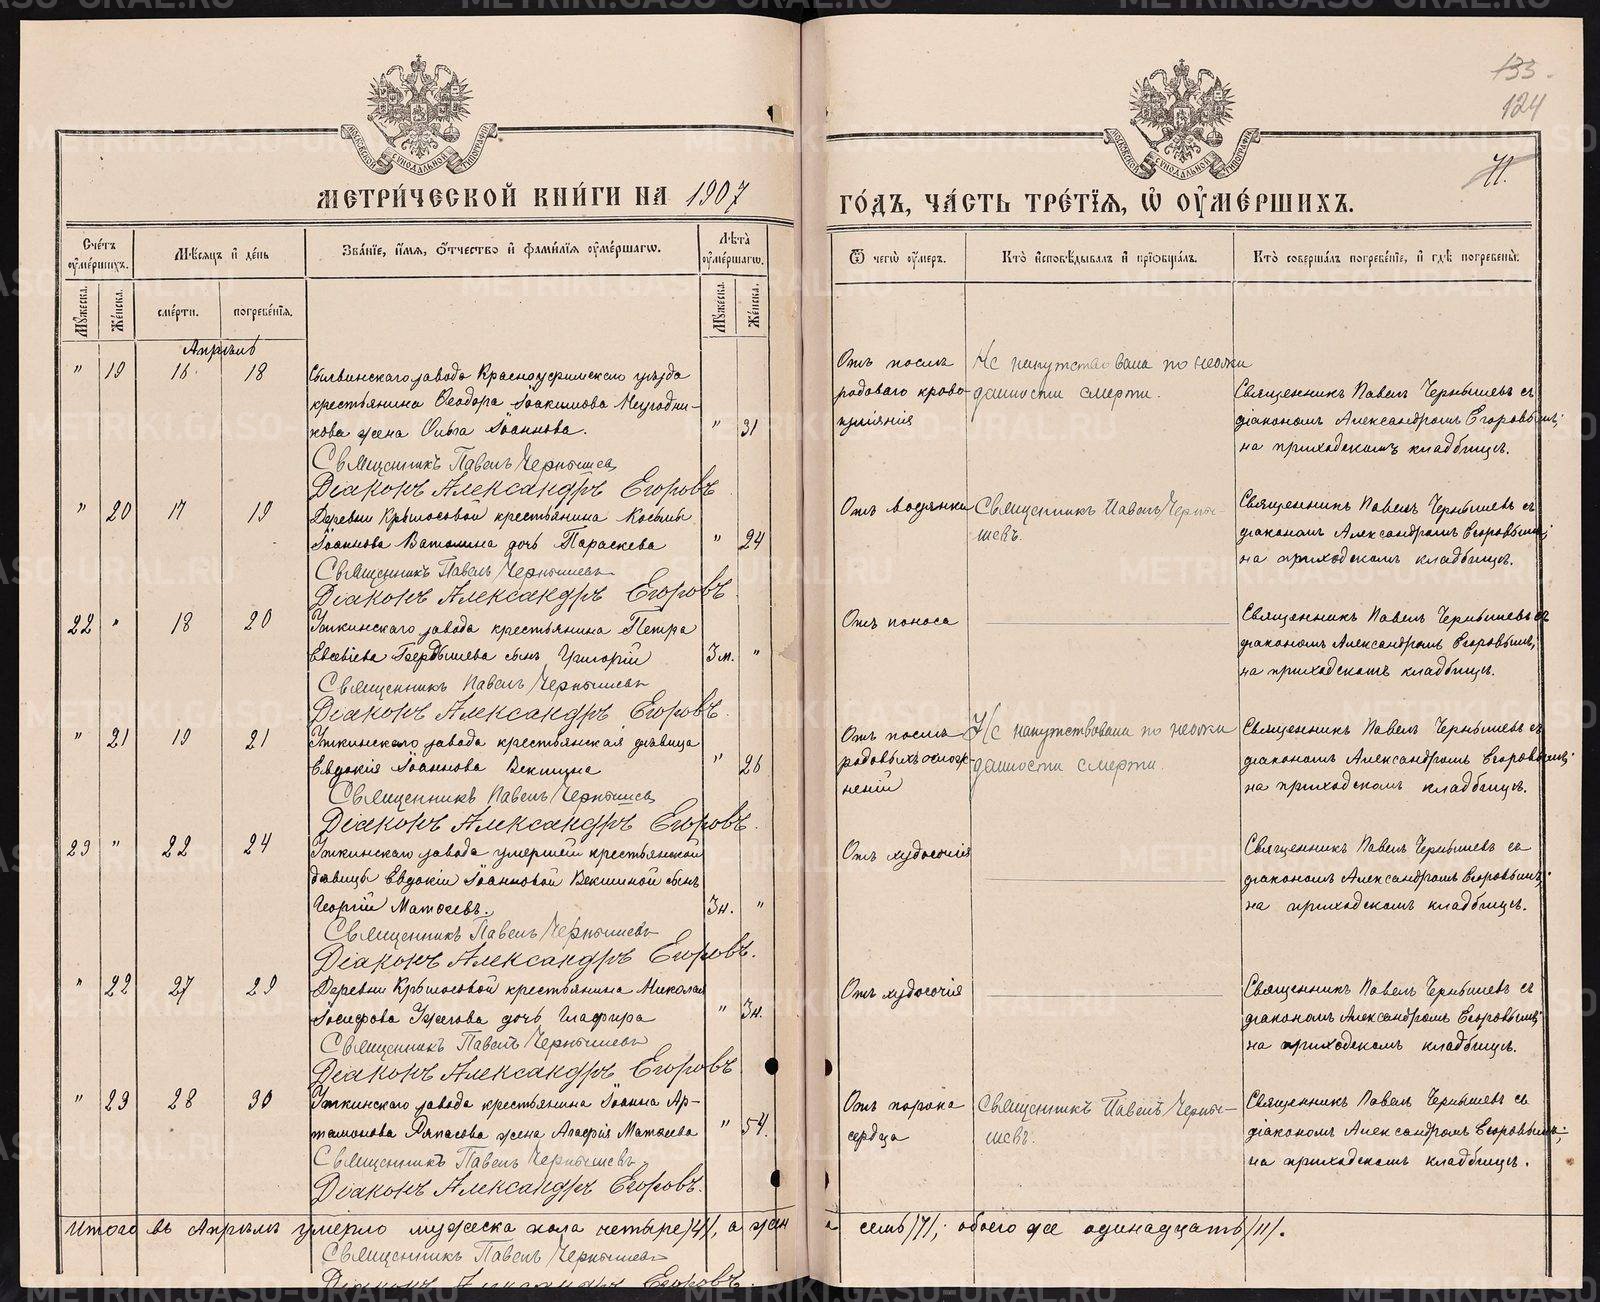 133.
124
71.
МОСКОВСКОЙ СѴНОДАЛЬНОЙ ТИПОГРАФІИ
МОСКОВСКОЙ СѴНОДАЛЬНОЙ ТИПОГРАФІИ
МЕТРИ́ЧЕСКОЙ КНИ́ГИ НА 1907 ГО́ДЪ, ЧА́СТЬ ТРЕ́ТІѦ, Ѡ҆ ОУ҆МЕ́РШИХЪ.
Сче́тъ оу҆ме́ршихъ.
Мѣ́сѧцъ и҆ де́нь
Зва́нїе, и҆́мѧ, ѻ҆́тчество и҆ фами́лїѧ оу҆ме́ршагѡ.
Лѣ́та оу҆ме́ршагѡ.
Ѿ чегѡ̀ оу҆́меръ.
Кто̀ и҆сповѣ́дывалъ и҆ прїѡбща́лъ.
Кто̀ соверша́лъ погребе́нїе, и҆ гдѣ̀ погребены̀.
Мꙋ́жеска.
Же́нска.
сме́рти.
погребе́нїѧ.
Мꙋ́жеска.
Же́нска.
Апрѣль
" 19 16 18 Сылвинскаго завода Красноуфимскаго уѣзда
крестьянина Ѳеодора Іоакимова Негодни-
кова жена Ольга Іоаннова. " 31
Священникъ Павелъ Чернышевъ
Діаконъ Александръ Егоровъ
Отъ послѣ
родоваго крово-
Не напутствована по неожи
данности смерти.
Священникъ Павелъ Чернышевъ съ
діакономъ Александромъ Егоровымъ;
на приходскомъ кладбищѣ.
" 20 17 19 Деревни Крылосовой крестьянина Косьмы
Іоаннова Ватолина дочь Параскева " 24
Священникъ Павелъ Чернышевъ
Діаконъ Александръ Егоровъ
Отъ водянки
Священникъ Павелъ Черны-
шевъ.
Священникъ Павелъ Чернышевъ съ
діакономъ Александромъ Егоровымъ;
на приходскомъ кладбищѣ.
22 " 18 20 Уткинскаго завода крестьянина Петра
Евсевіева сынъ Григорій 3 м. "
Священникъ Павелъ Чернышевъ
Діаконъ Александръ Егоровъ.
Отъ поноса
Священникъ Павелъ Чернышевъ съ
діакономъ Александромъ Егоровымъ;
на приходскомъ кладбищѣ.
" 21 19 21 Уткинскаго завода крестьянская дѣвица
Евдокія Іоаннова Векшина " 26
Священникъ Павелъ Чернышевъ
Діаконъ Александръ Егоровъ.
Отъ послѣ-
родовыхъ ослож-
неній
Не напутствована по неожи
данности смерти.
Священникъ Павелъ Чернышевъ съ
діакономъ Александромъ Егоровымъ;
на приходскомъ кладбищѣ.
23 " 22 24 Уткинскаго завода умершей крестьянской
дѣвицы Евдокіи Іоанновой Векшиной сынъ
Георгій Матѳеевъ. 3 н. "
Священникъ Павелъ Чернышевъ
Діаконъ Александръ Егоровъ.
Отъ худосочія
Священникъ Павелъ Чернышевъ съ
діакономъ Александромъ Егоровымъ;
на приходскомъ кладбищѣ.
" 22 27 29 Деревни Крылосовой крестьянина Николая
Іосифова Ужегова дочь Глафира " 3 н.
Священникъ Павелъ Чернышевъ
Діаконъ Александръ Егоровъ
Отъ худосочія
Священникъ Павелъ Чернышевъ съ
діакономъ Александромъ Егоровымъ;
на приходскомъ кладбищѣ.
" 23 28 30 Уткинскаго завода крестьянина Іоанна Ар-
тамонова Ряпасова жена Агафія Матѳеева " 54.
Священникъ Павелъ Чернышевъ
Діаконъ Александръ Егоровъ.
Отъ порока
сердца
Священникъ Павелъ Черны-
шевъ.
Священникъ Павелъ Чернышевъ съ
діакономъ Александромъ Егоровымъ;
на приходскомъ кладбищѣ.
Итого въ Апрѣлѣ умерло мужеска пола четыре /4/, а жен
семь /7/; обоего же одинадцать /11/.
Священникъ Павелъ Чернышевъ
Діаконъ Александръ Егоровъ.
METRIKI.GASO-URAL.RU